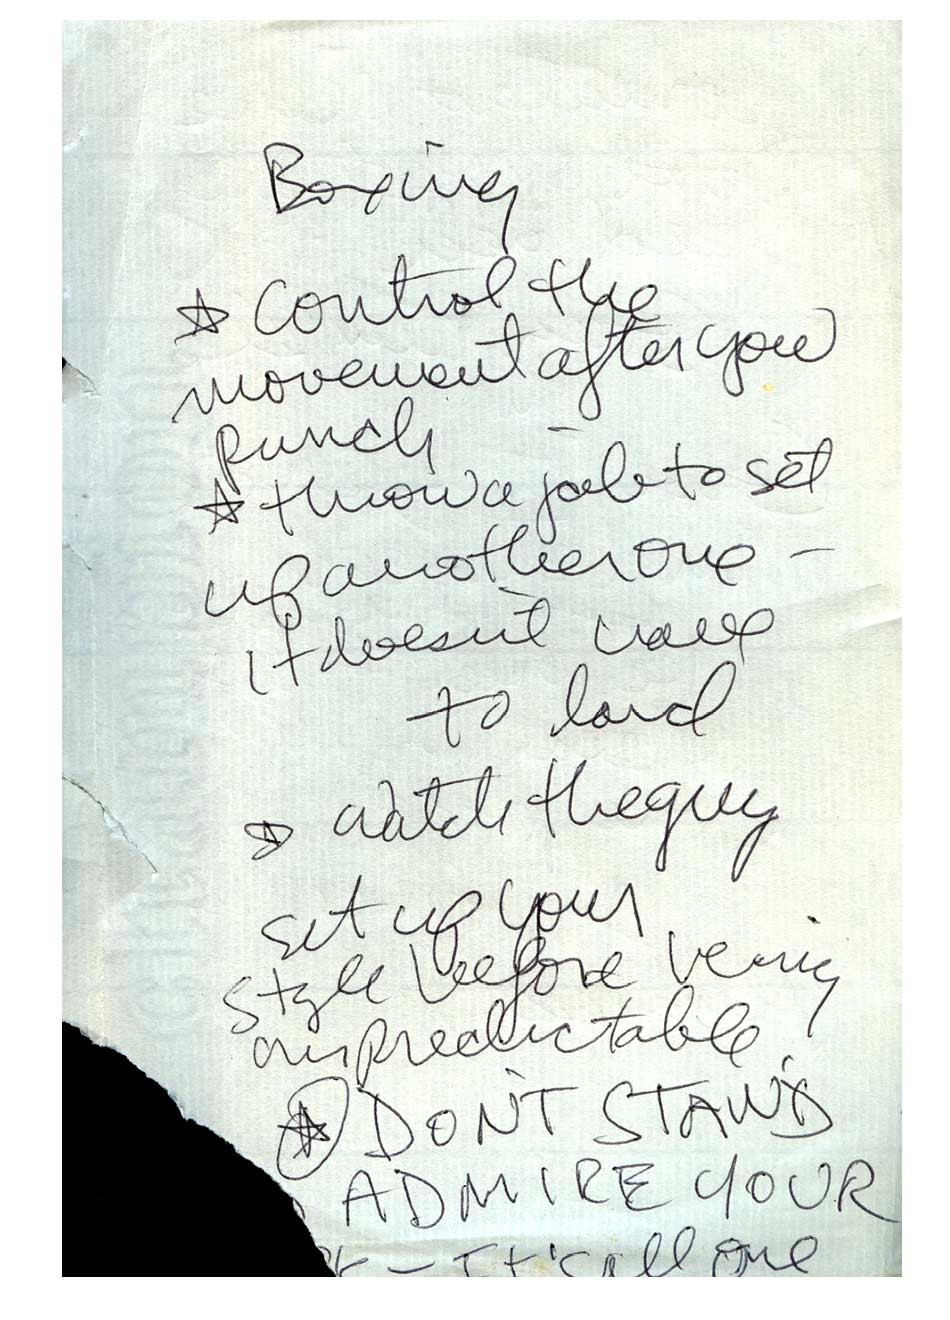 Boxing
☆ control the
movement after you
punch –
☆ throw a jab to set
up another one –
it doesn't have
to land
☆ watch the guy
set up your
style before being
unpredictable
☆ DON'T STAND
ADMIRE YOUR
– It's all one